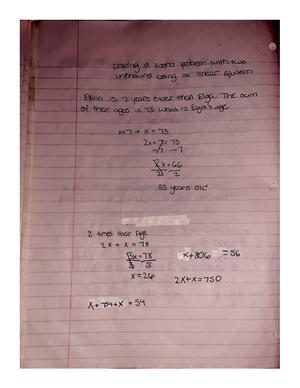 Solving a word problem with two
unknowns using a linear equation
Alvin is 7 years older than Elga. The sum
of their ages is 73 what is Elga's age
x+7 + x = 73
2x+7 = 73
-7 -7
2x=66
2 2
33 years old
2 times their Age
2x + x = 78
3x = 78
3 3
x=26
x+806 = 56
2x+x=750
x+ 34+x = 54